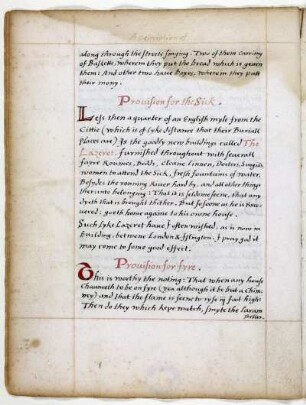 along through the streets singing: Two of them Carring
of Baskette, wherein they put the bread which is geven
them: And other two have Boxes, wherein they putt
their mony.
Provision for the Sick.
Less then a quarter of an English myle from the
Cittie (which is of lyke distance that their Buriall
places are) Is the goodly neat buildings called, The
Lazeret: furnished throughout with severall
fayre Roumes, Bedds, cleane Linnen, Doctors, Surgiõs
women to attend the Sick, fresh fountains of water.
Besydes the running River hard by, and all other things
there into belonging: That it is seldome seene, that any
dyeth that is brought thither. But so soone as he is Reco-
vered: goeth home againe to his owne house.
Such lyke Lazeret have I often wished, as is now in
building, betwene London & Islington: I pray god it
may come to some good effect.
Provision for fyre.
This is worthy the noting: That when any house
Chaunceth to be on fyre (yea although it be but a Chim-
ney) and that the flame is seene to ryse up fast high
Then do they which kepe watch, smyte the Laram